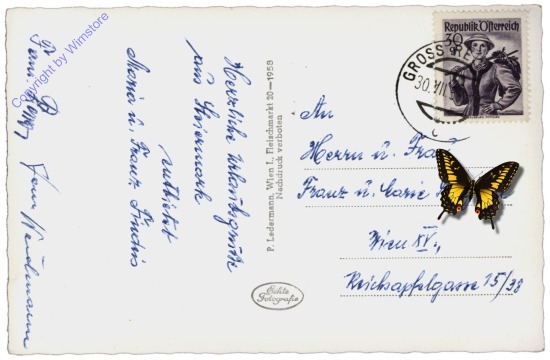 Copyright by Wimstore
Herzliche Urlaubsgrüße
aus Steiermark
entbietet
Maria u. Franz
Fam.
P. Ledermann, Wien I., Fleischmarkt 20—1958
Nachdruck verboten
Echte
Fotografie
Republik Österreich
30
GROSS
30. VII
c
An
Herrn u.
Franz u.
Wien XV.,
Reichsapfelgasse 15/38